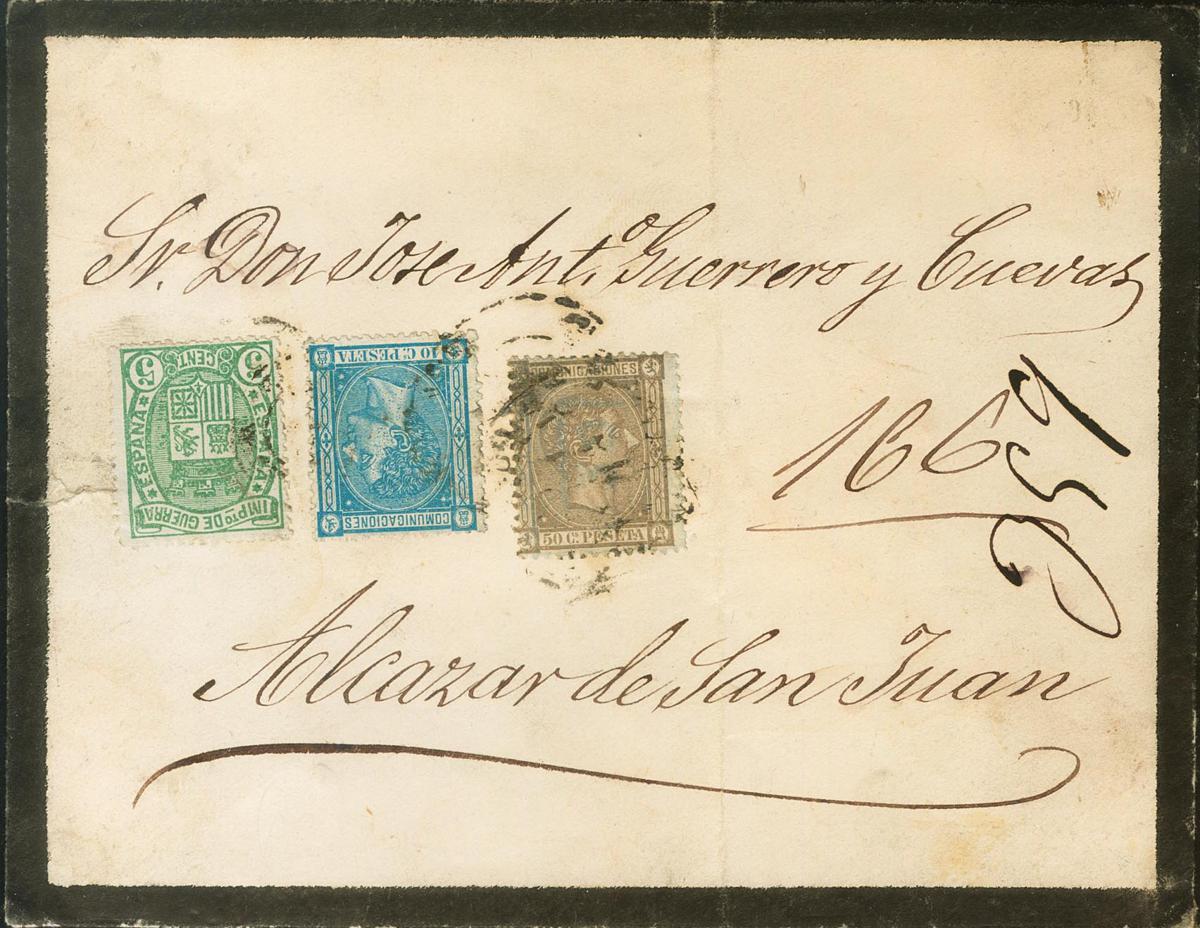 Sr. Don Jose Ant.º Guerrero y Cuevas
5 CENT 5
ESPAÑA
ESPAÑA
IMPTO DE GUERRA
10 C. PESETA
COMUNICACIONES
COMUNICACIONES
50 C. PESETA
166
959
Alcazar de San Juan